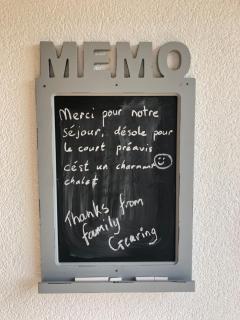 MEMO
Merci pour notre
séjour, désole pour
le court préavis
c'ést un charmant
chalet
Thanks from
family
Gearing